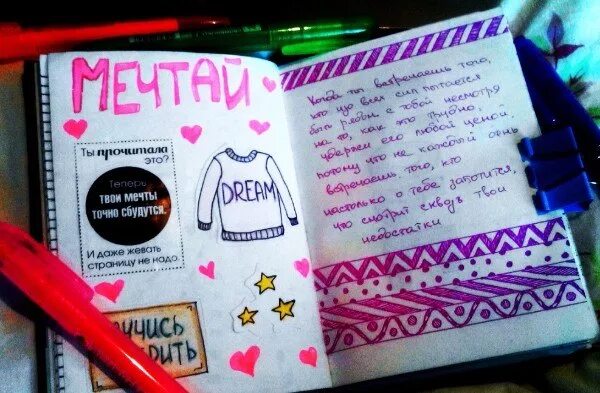 МЕЧТАЙ
Ты прочитала
это?
Теперь
твои мечты
точно сбудутся.
И даже жевать
страницу не надо.
DREAM
Когда ты встречаешь того,
кто изо всех сил пытается
быть рядом с тобой несмотря
на то, как это трудно,
удержи его любой ценой,
потому что не каждый день
встречаешь того, кто
настолько о тебе заботится,
что смотрит сквозь твои
недостатки